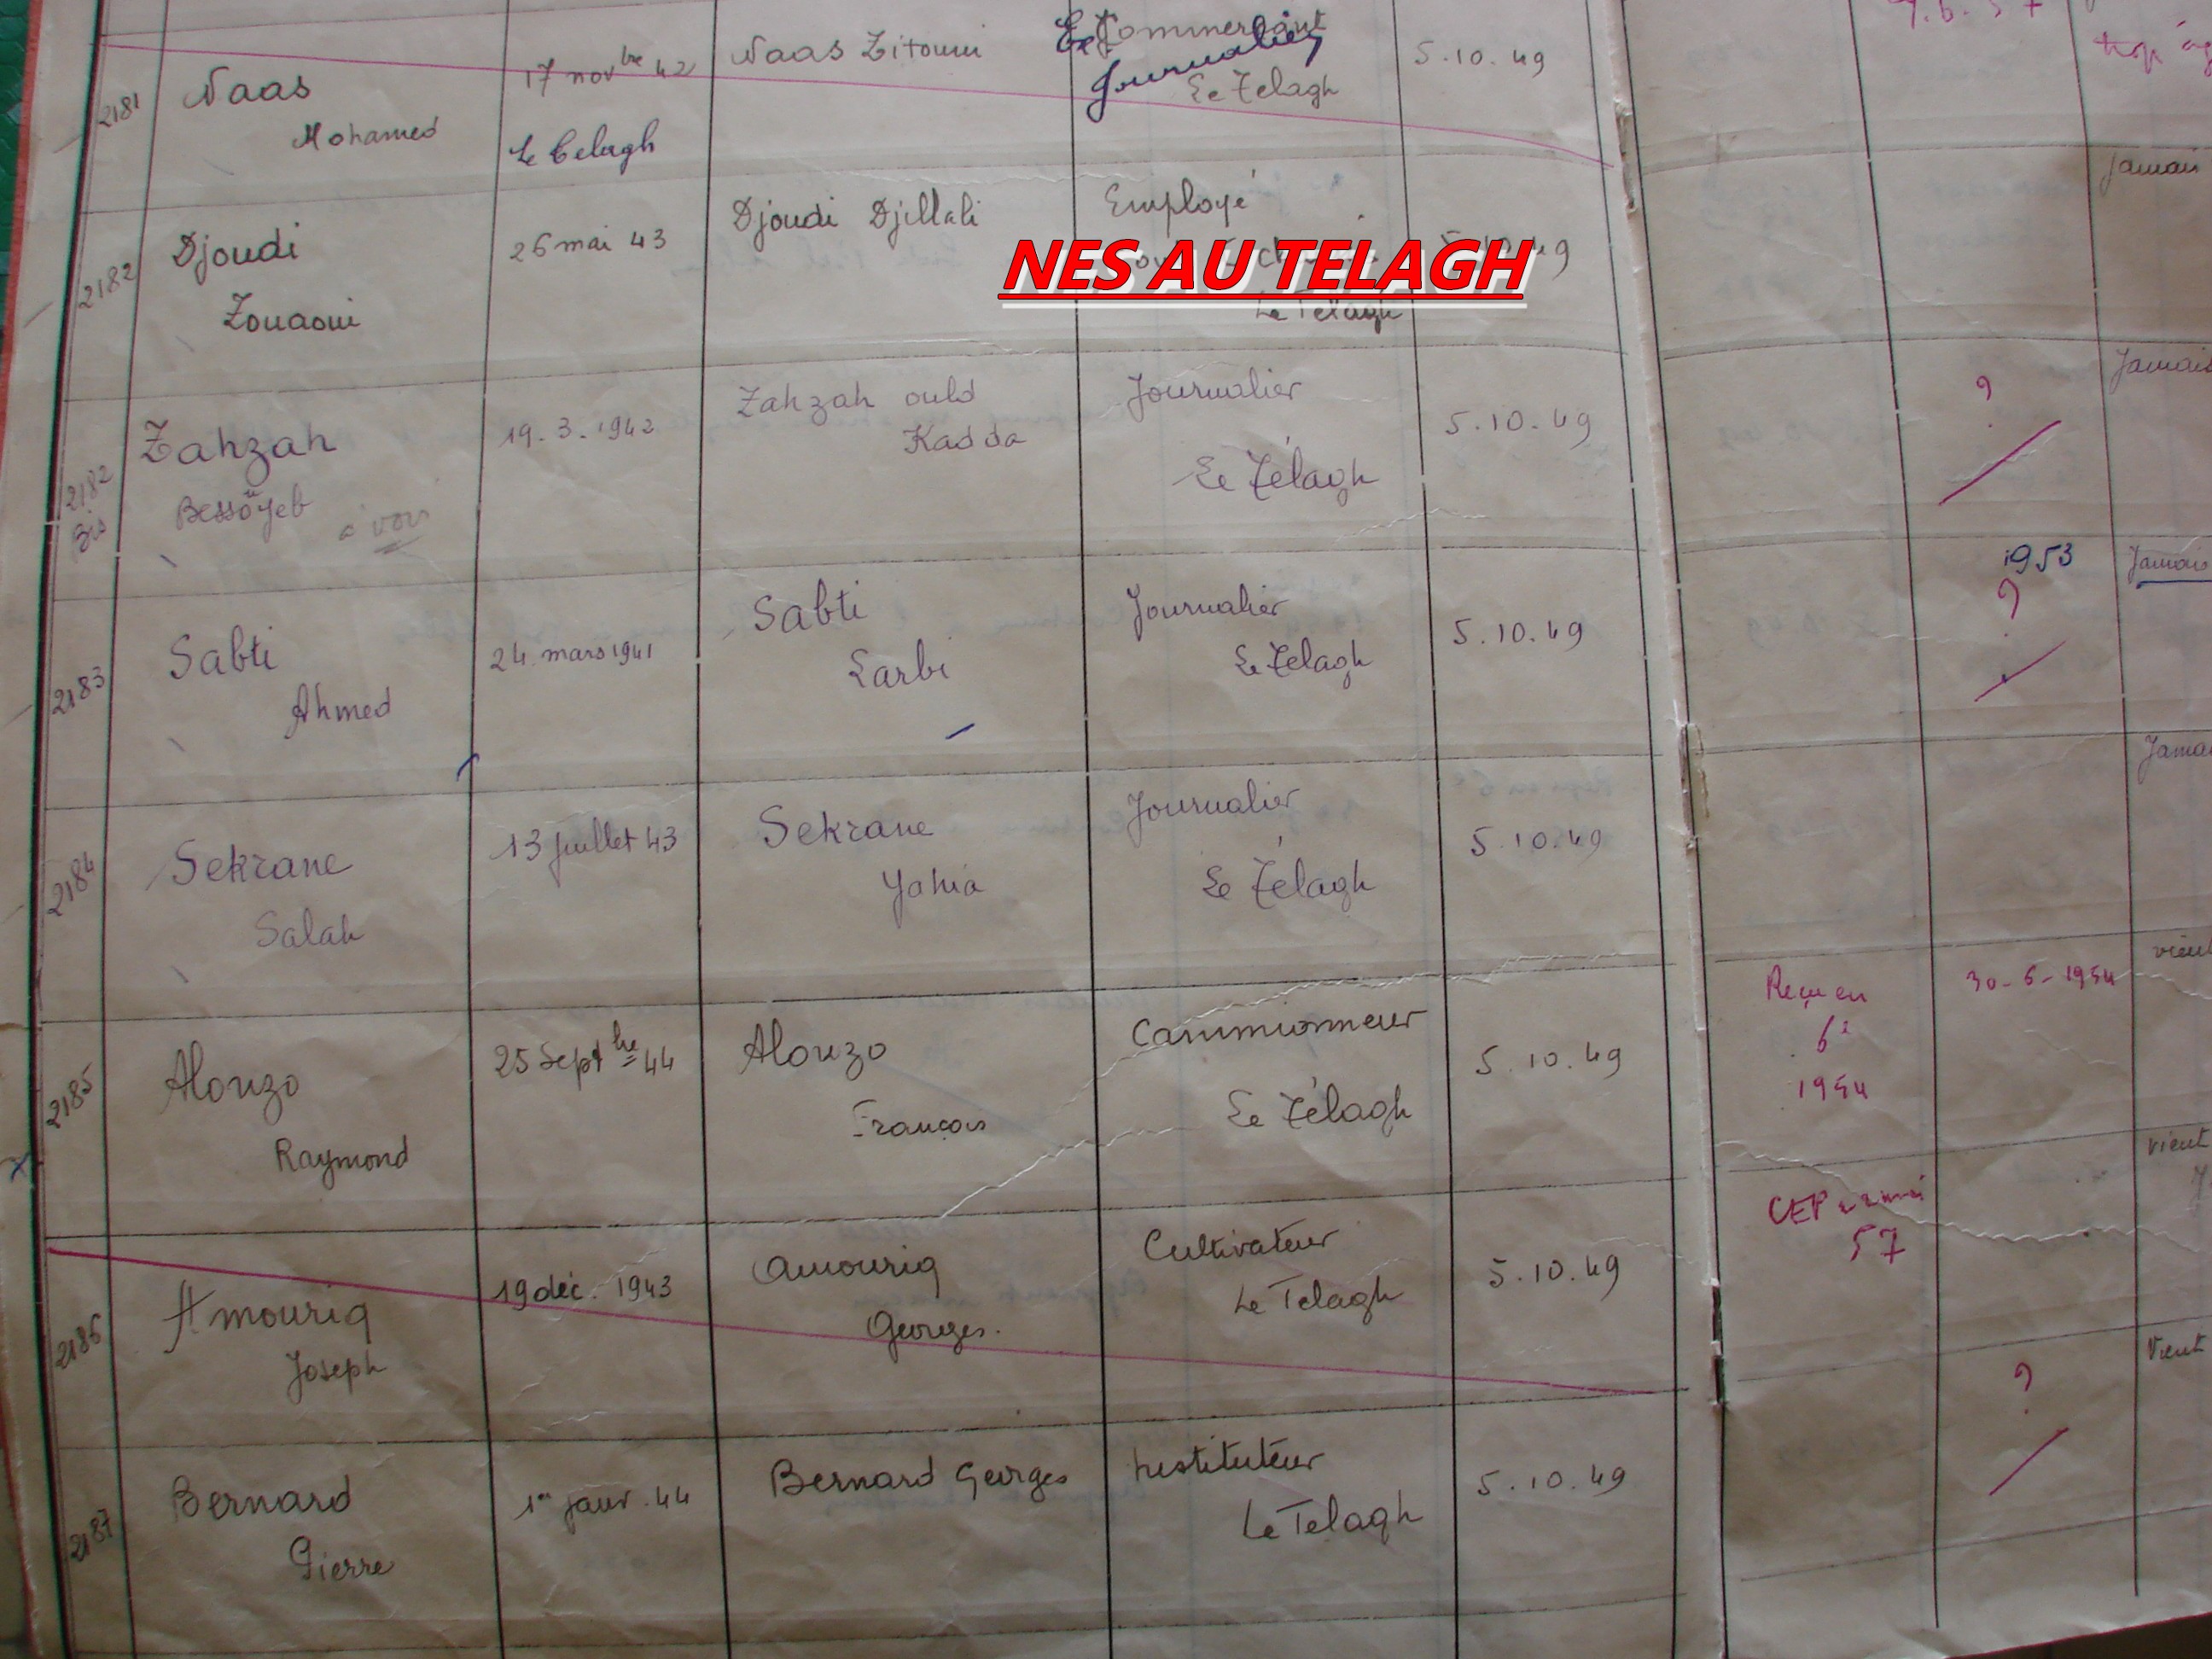 2181
Naas
Mohamed
17 novbre 42
Le Telagh
Naas Zitouni
Commerçant
Journalier
Le Telagh
5.10.49
2182
Djoudi
Zouaoui
26 mai 43
Djoudi Djillali
Employé
NES AU TELAGH
Le Telagh
2182
Bis
Zahzah
Bessayeb
à voir
19.3.1942
Zahzah ould
Kadda
Journalier
Le Télagh
5.10.49
?
Jamais
2183
Sabti
Ahmed
24 mars 1941
Sabti
Larbi
Journalier
Le Télagh
5.10.49
1953
?
Jamais
2184
Sekrane
Salah
13 juillet 43
Sekrane
Yahia
Journalier
Le Télagh
5.10.49
2185
Alonzo
Raymond
25 Septbre 44
Alonzo
François
Cammionneur
Le Télagh
5.10.49
Reçu en
6e
1954
30-6-1954
2186
Amourig
Joseph
19 déc. 1943
Amourig
Georges.
Cultivateur
Le Telagh
5.10.49
CEP
57
vient
2187
Bernard
Pierre
1er janv. 44
Bernard Georges
Instituteur
Le Telagh
5.10.49
?
Vient